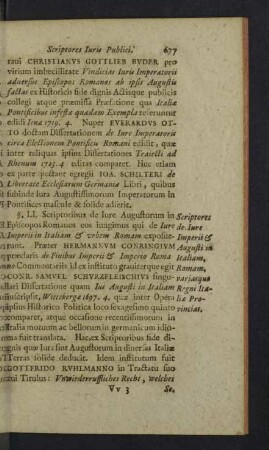 Scriptores Iuris Publici. 677
raui CHRISTIANVS GOTTLIEB BVDER pro
virium imbecillitate Vindicias Iuris Imperatorii
aduersus Episcopos Romanos ab ipsis Augustis
factas ex Historicis fide dignis Actisque publicis
collegi atque præmissa Præfatione qua Italiæ
Pontificibus infesta quædam Exempla referuntur
edidi Iena 1719. 4. Nuper EVERARDVS OT-
TO doctam Dissertationem de Iure Imperatorio
circa Electionem Pontificis Romani edidit, quæ
inter reliquas ipsius Dissertationes Traiecti ad
Rhenum 1723. 4 editas comparet. Nec etiam
ex parte peccant egregii IOA. SCHILTERI de
Libertate Ecclesiarum Germaniæ Libri, quibus
subinde Iura Augustissimorum Imperatorum in
Pontifices mascule & solide adserit.
§. LI. Scriptoribus de Iure Augustorum in
Episcopos Romanos eos iungimus qui de Iure
Imperii in Italiam & vrbem Romam exposue-
runt. Præter HERMANNVM CONRINGIVM
præclaris de Finibus Imperii & Imperio Roma
no Commentoriis id ex instituto grauiterque egit
CONR. SAMVEL SCHVRZFLEISCHIVS singu-
lari Dissertatione quam Ius Augusti in Italiam
inscripsit, Witteberga 1697. 4. quæ inter Opera
ipsius Historico Politica loco sexagesimo quinto
comparet, atque occasione recentissimorum in
Italia motuum ac bellorum in germanicum idio-
ma fuit translata. Hac ex Scriptoribus fide di-
gnis quæ Iura sint Augustorum in diuersas Italiæ
Terras solide deducit. Idem institutum fuit
GOTTFRIDO RVHLMANNO in Tractatu suo
cui Titulus: Unwiederrufliches Recht, welches
Vv 3 Se.
Scriptores
de Iure
Imperii &
Augusti in
Italiam,
Romam,
variasque
Regni Ita-
liæ Pro-
vincias.